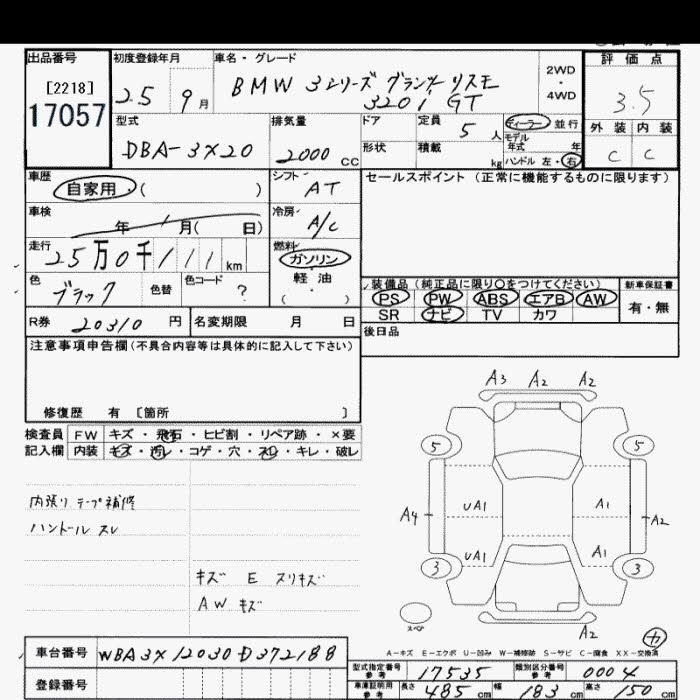 出品番号 初度登録年月 車名・グレード 評価点
[2218]
17057
25 9月
BMW 3シリーズ グランツーリスモ
320i GT
2WD
・
4WD
3.5
型式 排気量 ドア 定員 5人 ディーラー 並行
モデル
年式 年
外装 内装
DBA-3X20 2000cc 形状 積載 kg ハンドル 左・右 C C
車歴 シフト AT セールスポイント（正常に機能するものに限ります）
自家用（ ）
車検 冷房 A/C
年 月（ 日）
走行 燃料
25万0千111km ガソリン
軽油
（ ）
色 色替 色コード
ブラック ?
装備品（純正品に限り○をつけてください） 新車保証書
PS PW ABS エアB AW 有・無
SR ナビ TV カワ
R券 20310円 名変期限 月 日 後日品
注意事項申告欄（不具合内容等は具体的に記入して下さい）
修復歴 有 〔箇所 〕
検査員 FW キズ・飛石・ヒビ割・リペア跡・×要
記入欄 内装 キズ・汚レ・コゲ・穴・スレ・キレ・破レ
内張り テープ補修
ハンドル スレ
キズ E スリキズ
AW キズ
A3 A2 A2
5 5
UA1 A1
A4 A2
UA1 A1
3 3
スペア
A2
カ
A-キズ E-エクボ U-凹み W-補修跡 S-サビ C-腐食 XX-交換済
車台番号 WBA3X12030D372188
型式指定番号 参考 17535 類別区分番号 参考 0004
登録番号 車庫証明用 参考 長さ 485cm 幅 183cm 高さ 150cm